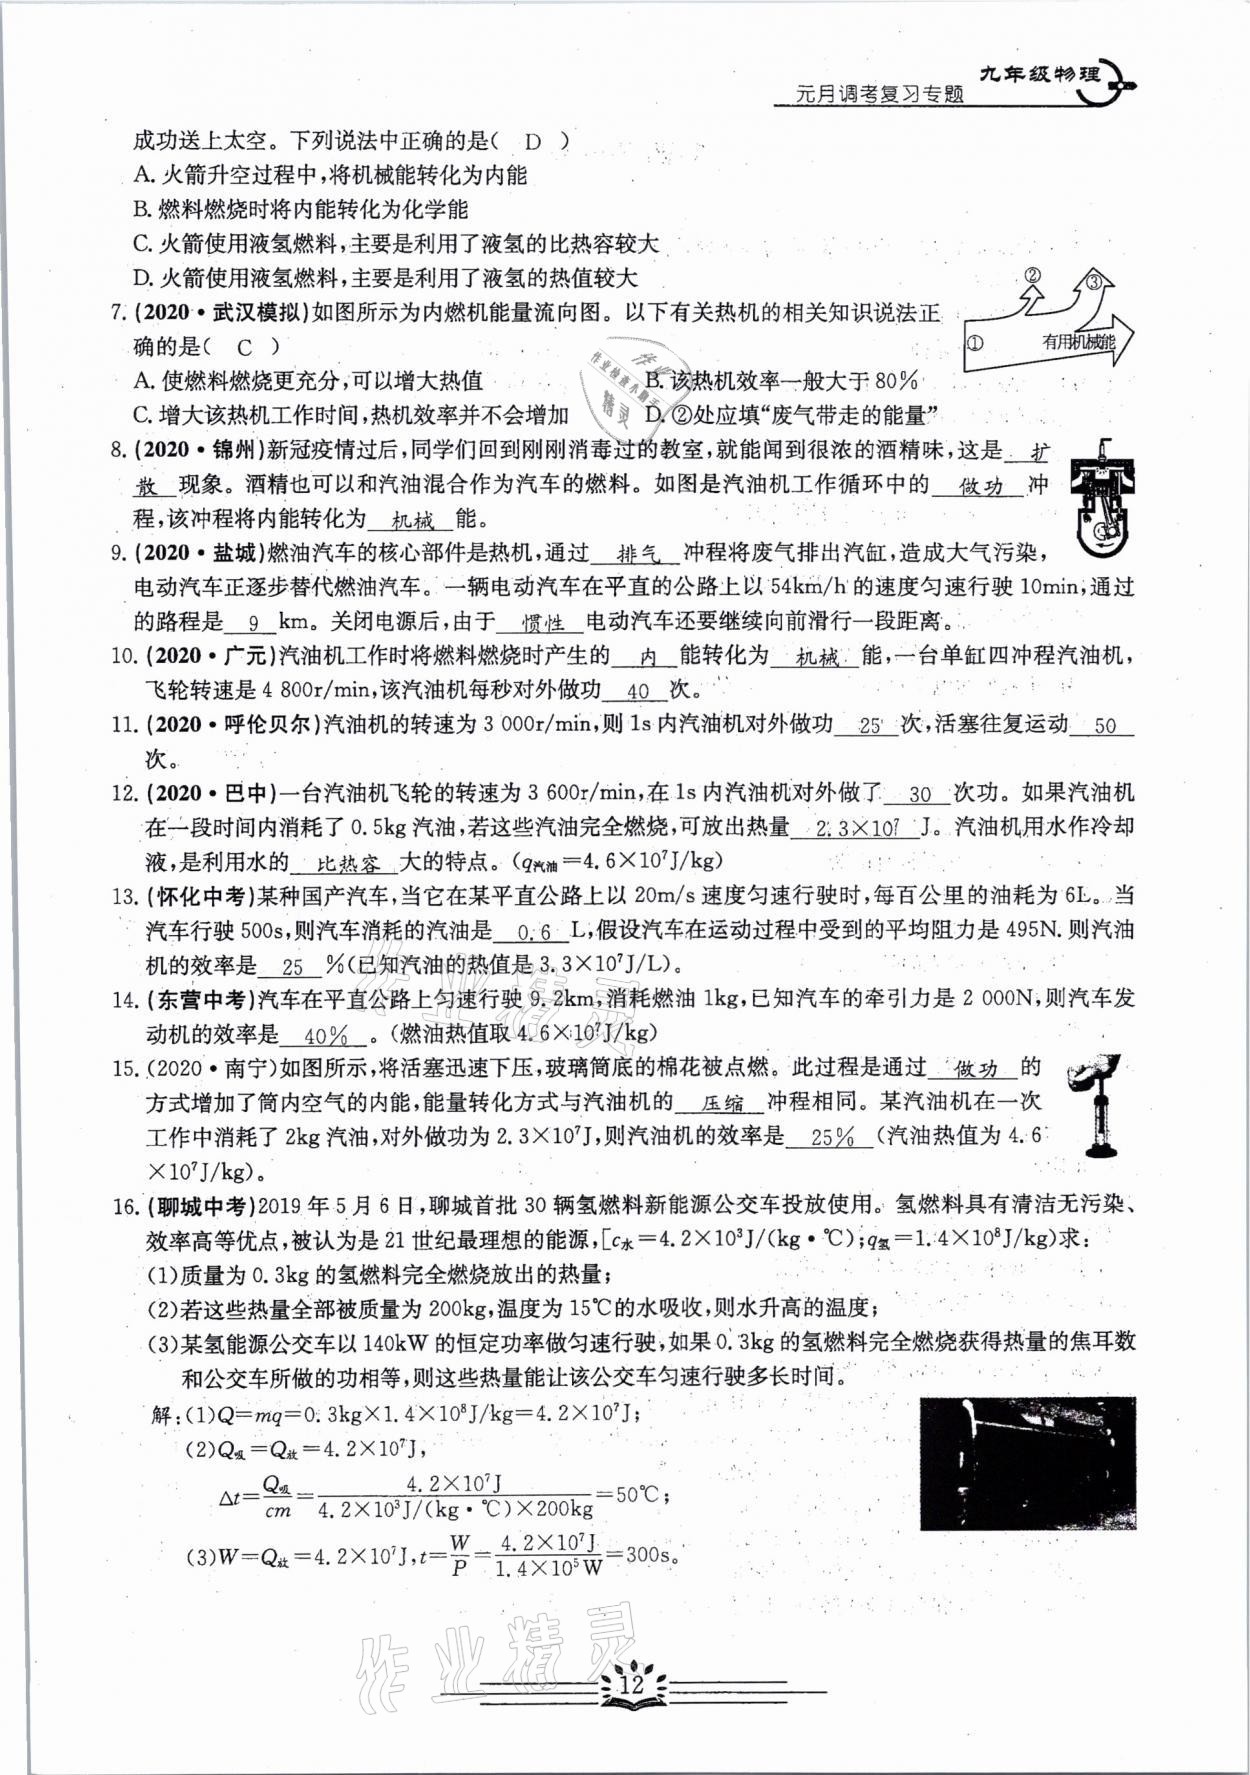 九年级物理
元月调考复习专题
成功送上太空。下列说法中正确的是( D )
A. 火箭升空过程中,将机械能转化为内能
B. 燃料燃烧时将内能转化为化学能
C. 火箭使用液氢燃料,主要是利用了液氢的比热容较大
D. 火箭使用液氢燃料,主要是利用了液氢的热值较大
7. (2020·武汉模拟)如图所示为内燃机能量流向图。以下有关热机的相关知识说法正
确的是( C )
① ② ③ 有用机械能
A. 使燃料燃烧更充分,可以增大热值 B. 该热机效率一般大于80%
C. 增大该热机工作时间,热机效率并不会增加 D. ②处应填“废气带走的能量”
8. (2020·锦州)新冠疫情过后,同学们回到刚刚消毒过的教室,就能闻到很浓的酒精味,这是 扩
散 现象。酒精也可以和汽油混合作为汽车的燃料。如图是汽油机工作循环中的 做功 冲
程,该冲程将内能转化为 机械 能。
9. (2020·盐城)燃油汽车的核心部件是热机,通过 排气 冲程将废气排出汽缸,造成大气污染,
电动汽车正逐步替代燃油汽车。一辆电动汽车在平直的公路上以54km/h的速度匀速行驶10min,通过
的路程是 9 km。关闭电源后,由于 惯性 电动汽车还要继续向前滑行一段距离。
10. (2020·广元)汽油机工作时将燃料燃烧时产生的 内 能转化为 机械 能,一台单缸四冲程汽油机,
飞轮转速是4 800r/min,该汽油机每秒对外做功 40 次。
11. (2020·呼伦贝尔)汽油机的转速为3 000r/min,则1s内汽油机对外做功 25 次,活塞往复运动 50
次。
12. (2020·巴中)一台汽油机飞轮的转速为3 600r/min,在1s内汽油机对外做了 30 次功。如果汽油机
在一段时间内消耗了0.5kg汽油,若这些汽油完全燃烧,可放出热量 2.3×10⁷ J。汽油机用水作冷却
液,是利用水的 比热容 大的特点。(q汽油=4.6×10⁷J/kg)
13. (怀化中考)某种国产汽车,当它在某平直公路上以20m/s速度匀速行驶时,每百公里的油耗为6L。当
汽车行驶500s,则汽车消耗的汽油是 0.6 L,假设汽车在运动过程中受到的平均阻力是495N.则汽油
机的效率是 25 %(已知汽油的热值是3.3×10⁷J/L)。
14. (东营中考)汽车在平直公路上匀速行驶9.2km,消耗燃油1kg,已知汽车的牵引力是2 000N,则汽车发
动机的效率是 40% 。(燃油热值取4.6×10⁷J/kg)
15. (2020·南宁)如图所示,将活塞迅速下压,玻璃筒底的棉花被点燃。此过程是通过 做功 的
方式增加了筒内空气的内能,能量转化方式与汽油机的 压缩 冲程相同。某汽油机在一次
工作中消耗了2kg汽油,对外做功为2.3×10⁷J,则汽油机的效率是 25% (汽油热值为4.6
×10⁷J/kg)。
16. (聊城中考)2019年5月6日,聊城首批30辆氢燃料新能源公交车投放使用。氢燃料具有清洁无污染、
效率高等优点,被认为是21世纪最理想的能源,[c水=4.2×10³J/(kg·℃);q氢=1.4×10⁸J/kg)求:
(1)质量为0.3kg的氢燃料完全燃烧放出的热量;
(2)若这些热量全部被质量为200kg,温度为15℃的水吸收,则水升高的温度;
(3)某氢能源公交车以140kW的恒定功率做匀速行驶,如果0.3kg的氢燃料完全燃烧获得热量的焦耳数
和公交车所做的功相等,则这些热量能让该公交车匀速行驶多长时间。
解:(1)Q=mq=0.3kg×1.4×10⁸J/kg=4.2×10⁷J;
(2)Q吸=Q放=4.2×10⁷J,
Δt=Q吸/cm=4.2×10⁷J/4.2×10³J/(kg·℃)×200kg=50℃;
(3)W=Q放=4.2×10⁷J,t=W/P=4.2×10⁷J/1.4×10⁵W=300s。
作业精灵
12